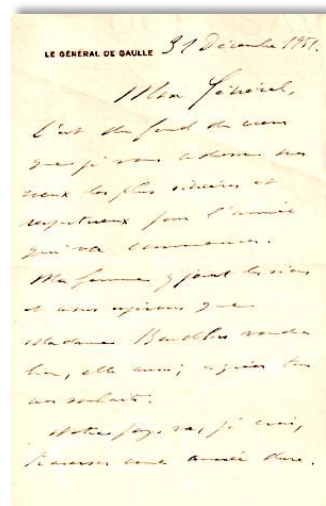 LE GÉNÉRAL DE GAULLE 31 Décembre 1951.
Mon Général,
C'est du fond du cœur
que je vous adresse mes
vœux les plus sincères et
respectueux pour l'année
qui va commencer.
Ma femme y joint les siens
et nous espérons que
Madame voudra
bien, elle aussi, agréer tous
nos souhaits.
Notre pays va, je crois,
traverser une année dure.